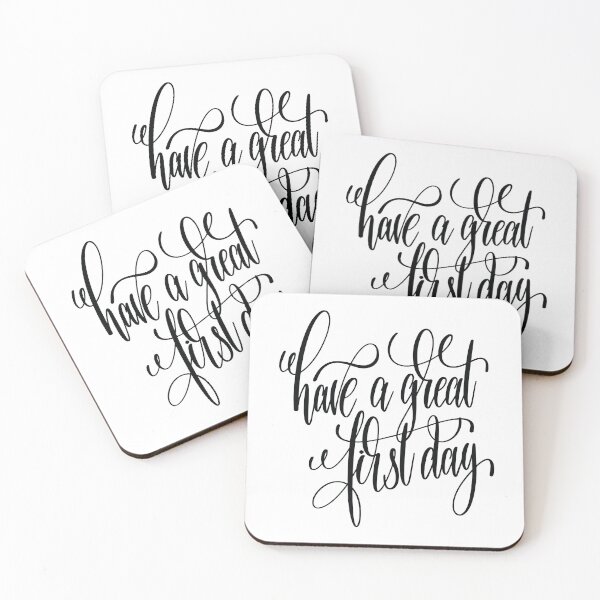 have a great
day
have a great
first day
have a great
first
have a great
first day